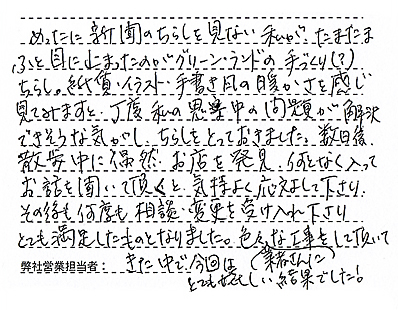 めったに新聞のちらしを見ない私が、たまたま
ふと目に止まったのがグリーン・ランドの手づくり(?)
ちらし。紙質・イラスト・手書き風の暖かさを感じ
見てみますと、丁度私の思案中の問題が解決
できそうな気がし、ちらしをとっておきました。数日後、
散歩中に偶然、お店を発見、何となく入って
お話を聞いて頂くと、気持よく応えまして下さり
その後も何度も相談・変更を受け入れ下さり
とても満足したものとなりました。色々な工事をして頂いて
弊社営業担当者: きた中で、今回は
とても嬉しい結果でした!